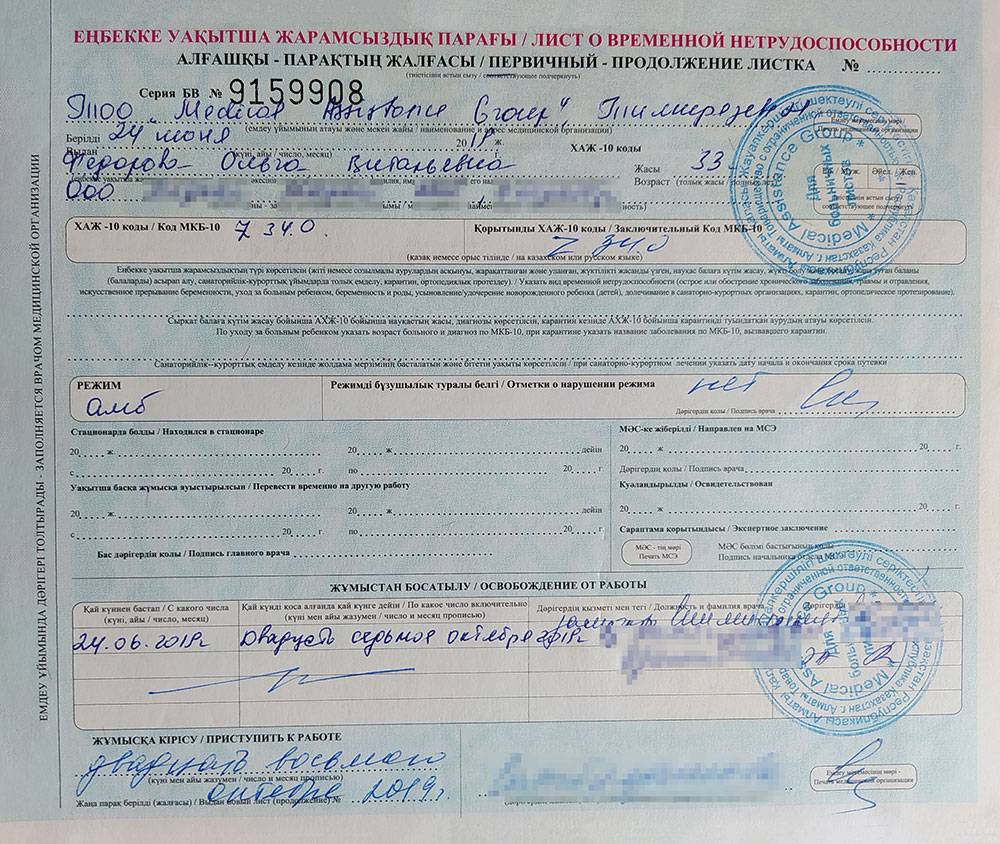 ЕҢБЕККЕ УАҚЫТША ЖАРАМСЫЗДЫҚ ПАРАҒЫ / ЛИСТ О ВРЕМЕННОЙ НЕТРУДОСПОСОБНОСТИ
АЛҒАШҚЫ - ПАРАҚТЫҢ ЖАЛҒАСЫ / ПЕРВИЧНЫЙ - ПРОДОЛЖЕНИЕ ЛИСТКА №
(тиістісінің астын сызу / соответствующее подчеркнуть)
Серия БВ № 9159908
ТОО „Medical Assistance Group", Тимирязева
(емдеу ұйымының атауы және мекен жайы / наименование и адрес медицинской организации)
Берілді 24 июня 2019 ж.
Выдан (күні, айы / число, месяц) ХАЖ -10 коды
Федорова Ольга Витальевна Жасы 33
Возраст (толық жасы / полных лет)
Ер / Муж. Әйел / Жен.
ООО
ХАЖ -10 коды / Код МКБ-10 Z 34.0 Қорытынды ХАЖ-10 коды / Заключительный Код МКБ-10
Z 34.0
(қазақ немесе орыс тілінде / на казахском или русском языке)
Еңбекке уақытша жарамсыздықтың түрі көрсетілсін (жіті немесе созылмалы аурулардың асқынуы, жарақаттанған және уланған, жүктілікті жасанды үзген, науқас балаға күтім жасау, жүкті болу
(балаларды) асырап алу, санаторийлік-курорттық ұйымдарда толық емделу, карантин, ортопедиялық протездеу). / Указать вид временной нетрудоспособности (острое или обострение хронического заболевания, травмы и отравления,
искусственное прерывание беременности, уход за больным ребенком, беременность и роды, усыновление/удочерение новорожденного ребенка (детей), долечивание в санаторно-курортных организациях, карантин, ортопедическое протезирование).
Сырқат балаға күтім жасау бойынша АХЖ-10 бойынша науқастың жасы, диагнозы көрсетілсін, карантин кезінде АХЖ-10 бойынша карантинді туындатқан аурудың атауы көрсетілсін.
По уходу за больным ребенком указать возраст больного и диагноз по МКБ-10, при карантине указать название заболевания по МКБ-10, вызвавшего карантин.
Санаторийлік–курорттық емделу кезінде жолдама мерзімінің басталатын және бітетін уақыты көрсетілсін / при санаторно-курортном лечении указать дату начала и окончания срока путевки
РЕЖИМ Режимді бұзушылық туралы белгі / Отметки о нарушении режима нет
амб Дәрігердің қолы / Подпись врача
Стационарда болды / Находился в стационаре МӘС-ке жіберілді / Направлен на МСЭ
20 ж. 20 ж дейін 20 ж 20 г.
с 20 г. по 20 г. Дәрігердің қолы / Подпись врача
Уақытша басқа жұмысқа ауыстырылсын / Перевести временно на другую работу Куәландырылды / Освидетельствован
20 ж. 20 ж дейін 20 ж 20 г.
с 20 г. по 20 г. Сараптама қорытындысы / Экспертное заключение
Бас дәрігердің қолы / Подпись главного врача
МӘС - тің мөрі МӘС бөлімі бастығының қолы
Печать МСЭ Подпись начальника отдела МСЭ
ЖҰМЫСТАН БОСАТЫЛУ / ОСВОБОЖДЕНИЕ ОТ РАБОТЫ
Қай күннен бастап / С какого числа Қай күнді қоса алғанда қай күнге дейін / По какое число включительно Дәрігердің қызметі мен тегі / Должность и фамилия врача Дәрігердің
(күні, айы / число, месяц) (күні мен айы жазумен / число и месяц прописью)
24.06.2019г Двадцать седьмое октября 2019г.
ЖҰМЫСҚА КІРІСУ / ПРИСТУПИТЬ К РАБОТЕ
двадцать восьмого
(күні мен айы жазумен / число и месяц прописью)
октября 2019г.
Жаңа парақ берілді (жалғасы) / Выдан новый лист (продолжение) №
Емдеу мекемесінің мөрі -
Печать медицинской организации
ЕМДЕУ ҰЙЫМЫНДА ДӘРІГЕРІ ТОЛТЫРАДЫ - ЗАПОЛНЯЕТСЯ ВРАЧОМ МЕДИЦИНСКОЙ ОРГАНИЗАЦИИ
Medical Assistance Group
Для больничных листов